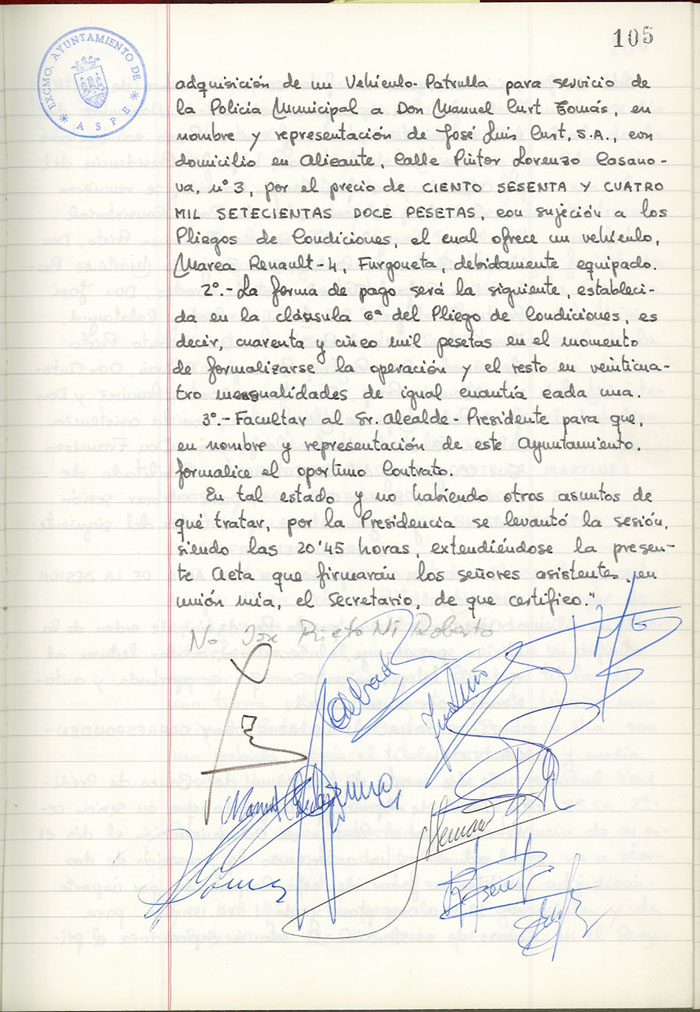 105
EXCMO. AYUNTAMIENTO DE
* ASPE *
adquisición de un Vehículo-Patrulla para servicio de
la Policía Municipal a Don Manuel Curt Tomás, en
nombre y representación de José Luis Curt, S.A., con
domicilio en Alicante, Calle Pintor Lorenzo Casano-
va, nº 3, por el precio de CIENTO SESENTA Y CUATRO
MIL SETECIENTAS DOCE PESETAS, con sujeción a los
Pliegos de Condiciones, el cual ofrece un vehículo,
Marca Renault-4, Furgoneta, debidamente equipado.
2º.- La forma de pago será la siguiente, estableci-
da en la cláusula 6ª del Pliego de Condiciones, es
decir, cuarenta y cinco mil pesetas en el momento
de formalizarse la operación y el resto en veinticua-
tro mensualidades de igual cuantía cada una.
3º.- Facultar al Sr. Alcalde-Presidente para que,
en nombre y representación de este Ayuntamiento,
formalice el oportuno Contrato.
En tal estado y no habiendo otros asuntos de
qué tratar, por la Presidencia se levantó la sesión,
siendo las 20'45 horas, extendiéndose la presen-
te Acta que firmarán los señores asistentes, en
unión mía, el Secretario, de que certifico."
No, José Prieto Ni Roberto